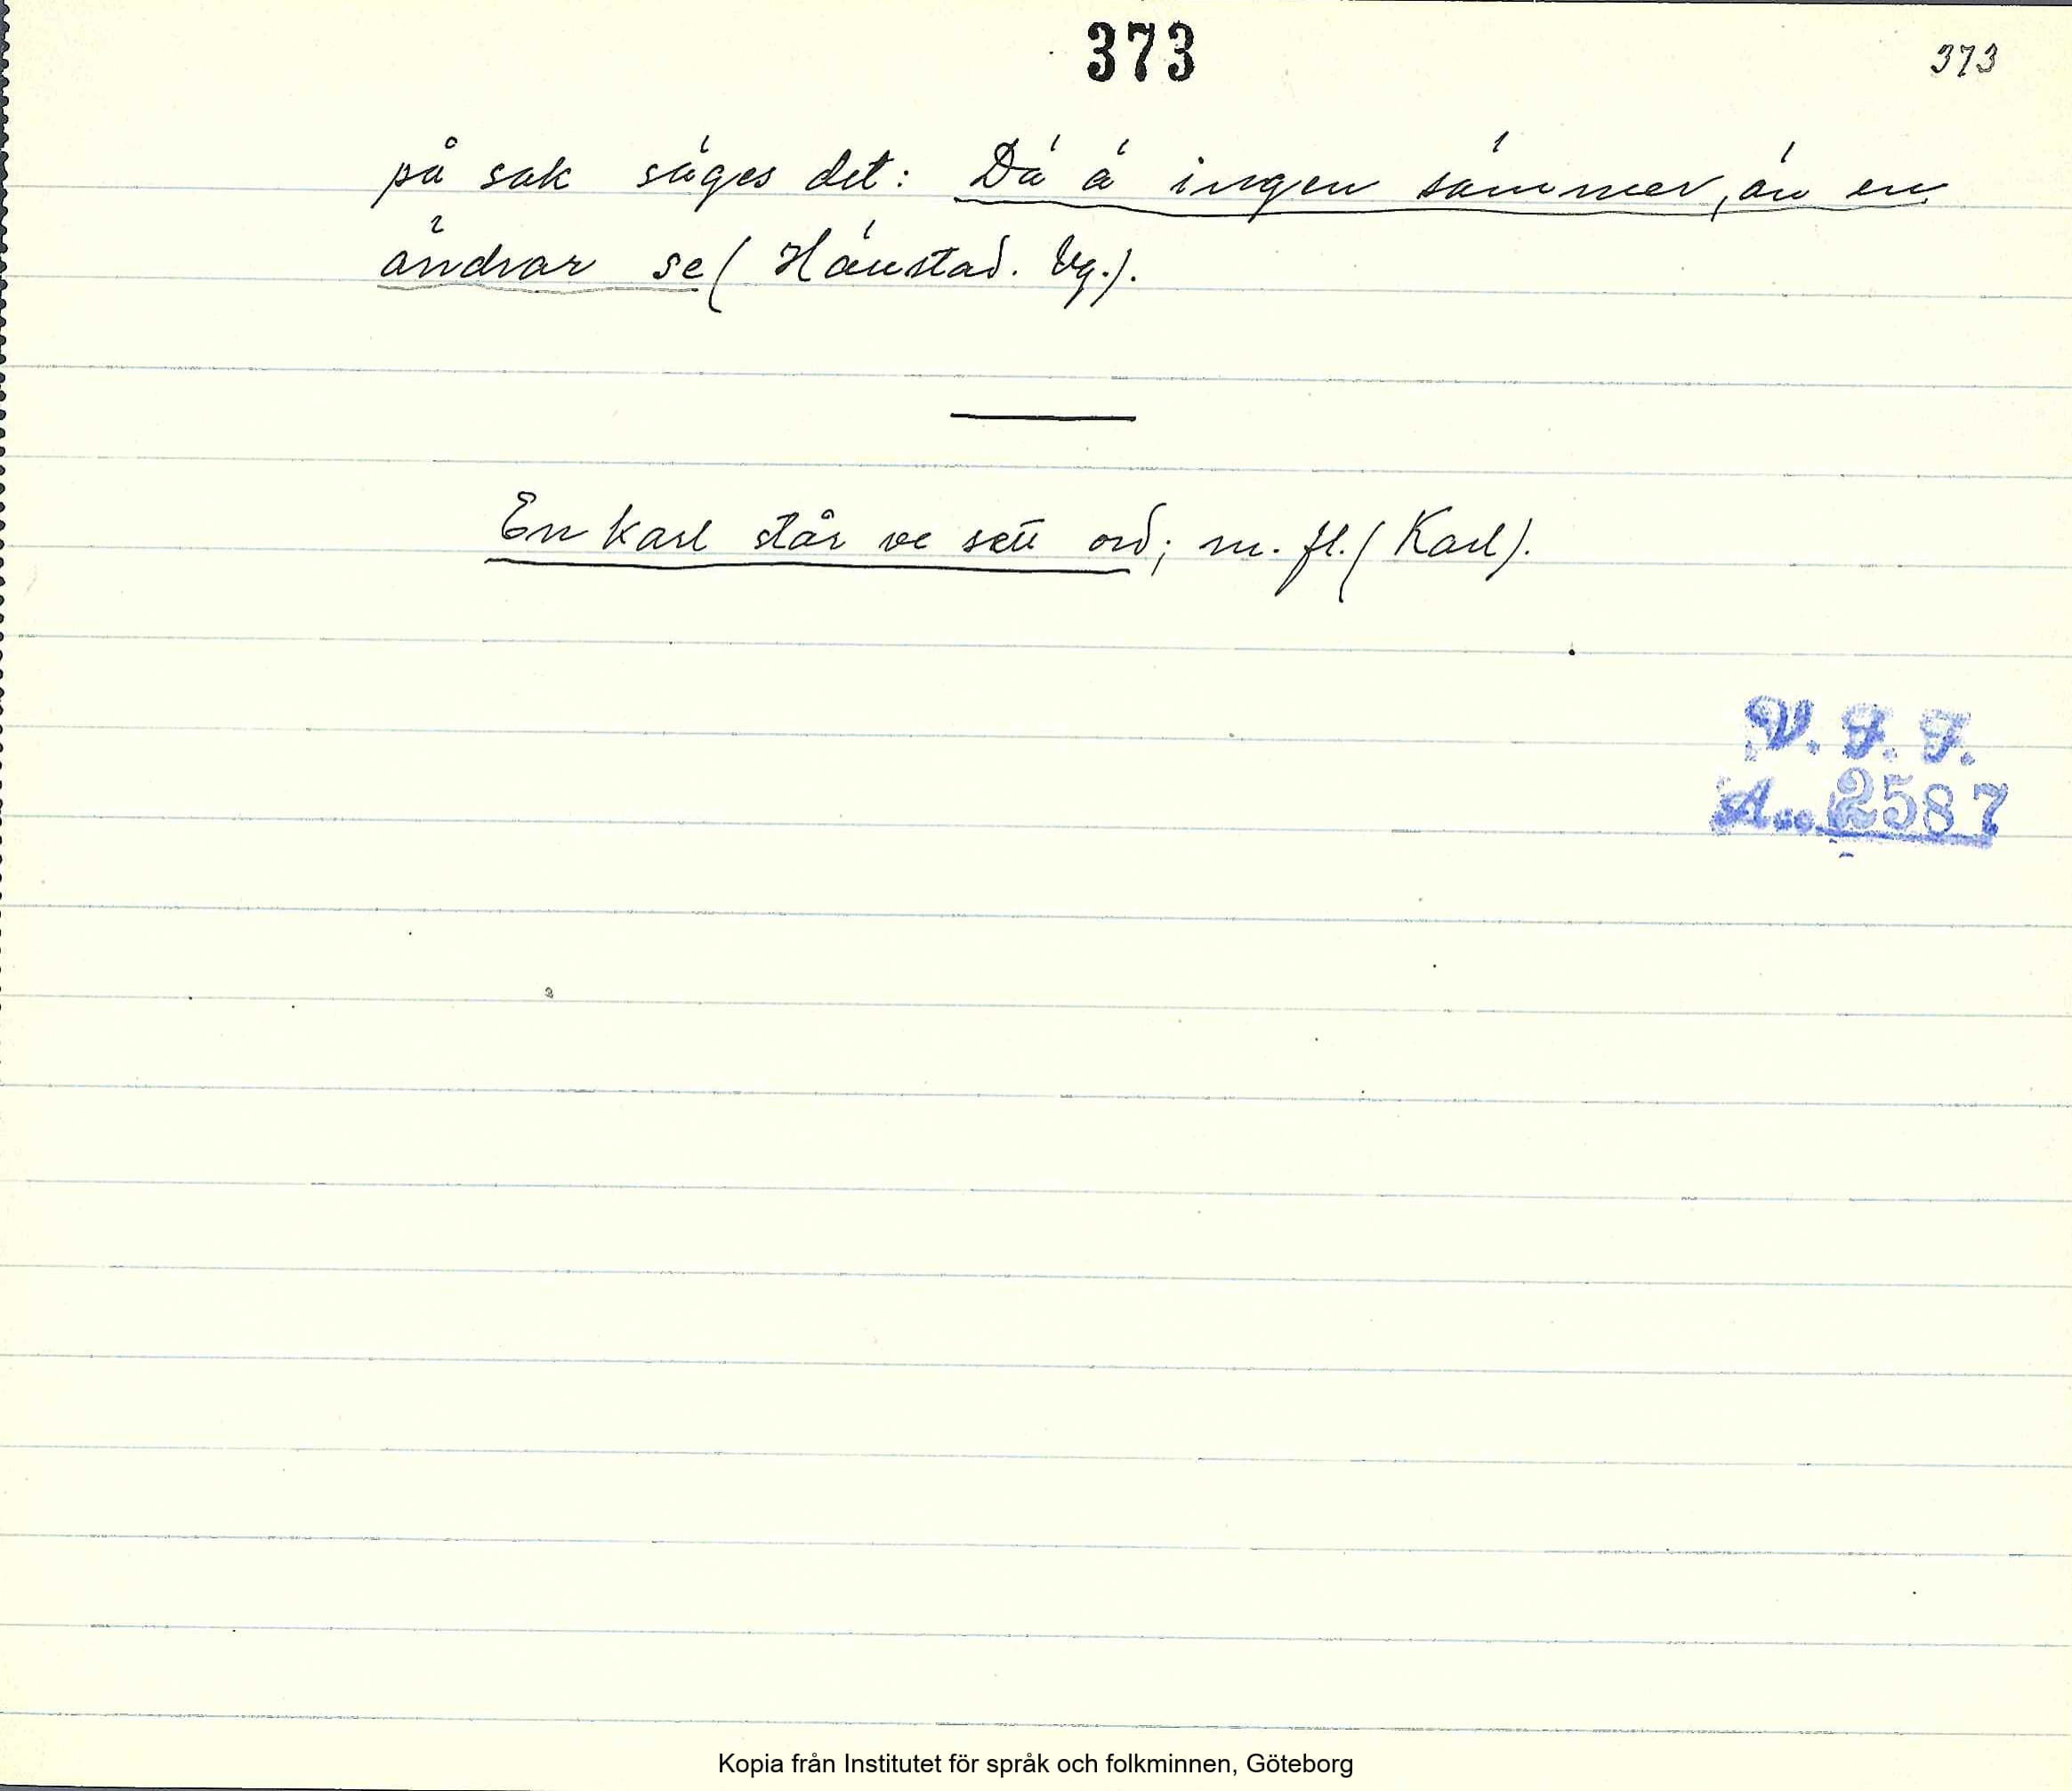 373
373
på sak säges det: Dä ä ingen sämmer, än en
ändrar se (Hänstad. Vg.).
En karl står ve sett ord; m. fl. (Karl).
V. F. F.
Acc. 2587
Kopia från Institutet för språk och folkminnen, Göteborg